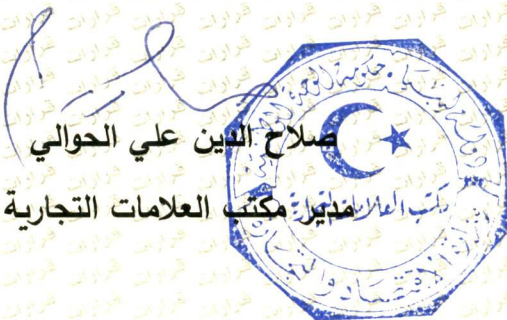 صلاح الدين علي الحوالي
مدير مكتب العلامات التجارية
دولة ليبيا حكومة الوحدة الوطنية
مكتب العلامات التجارية
وزارة الاقتصاد والتجارة
قرارات